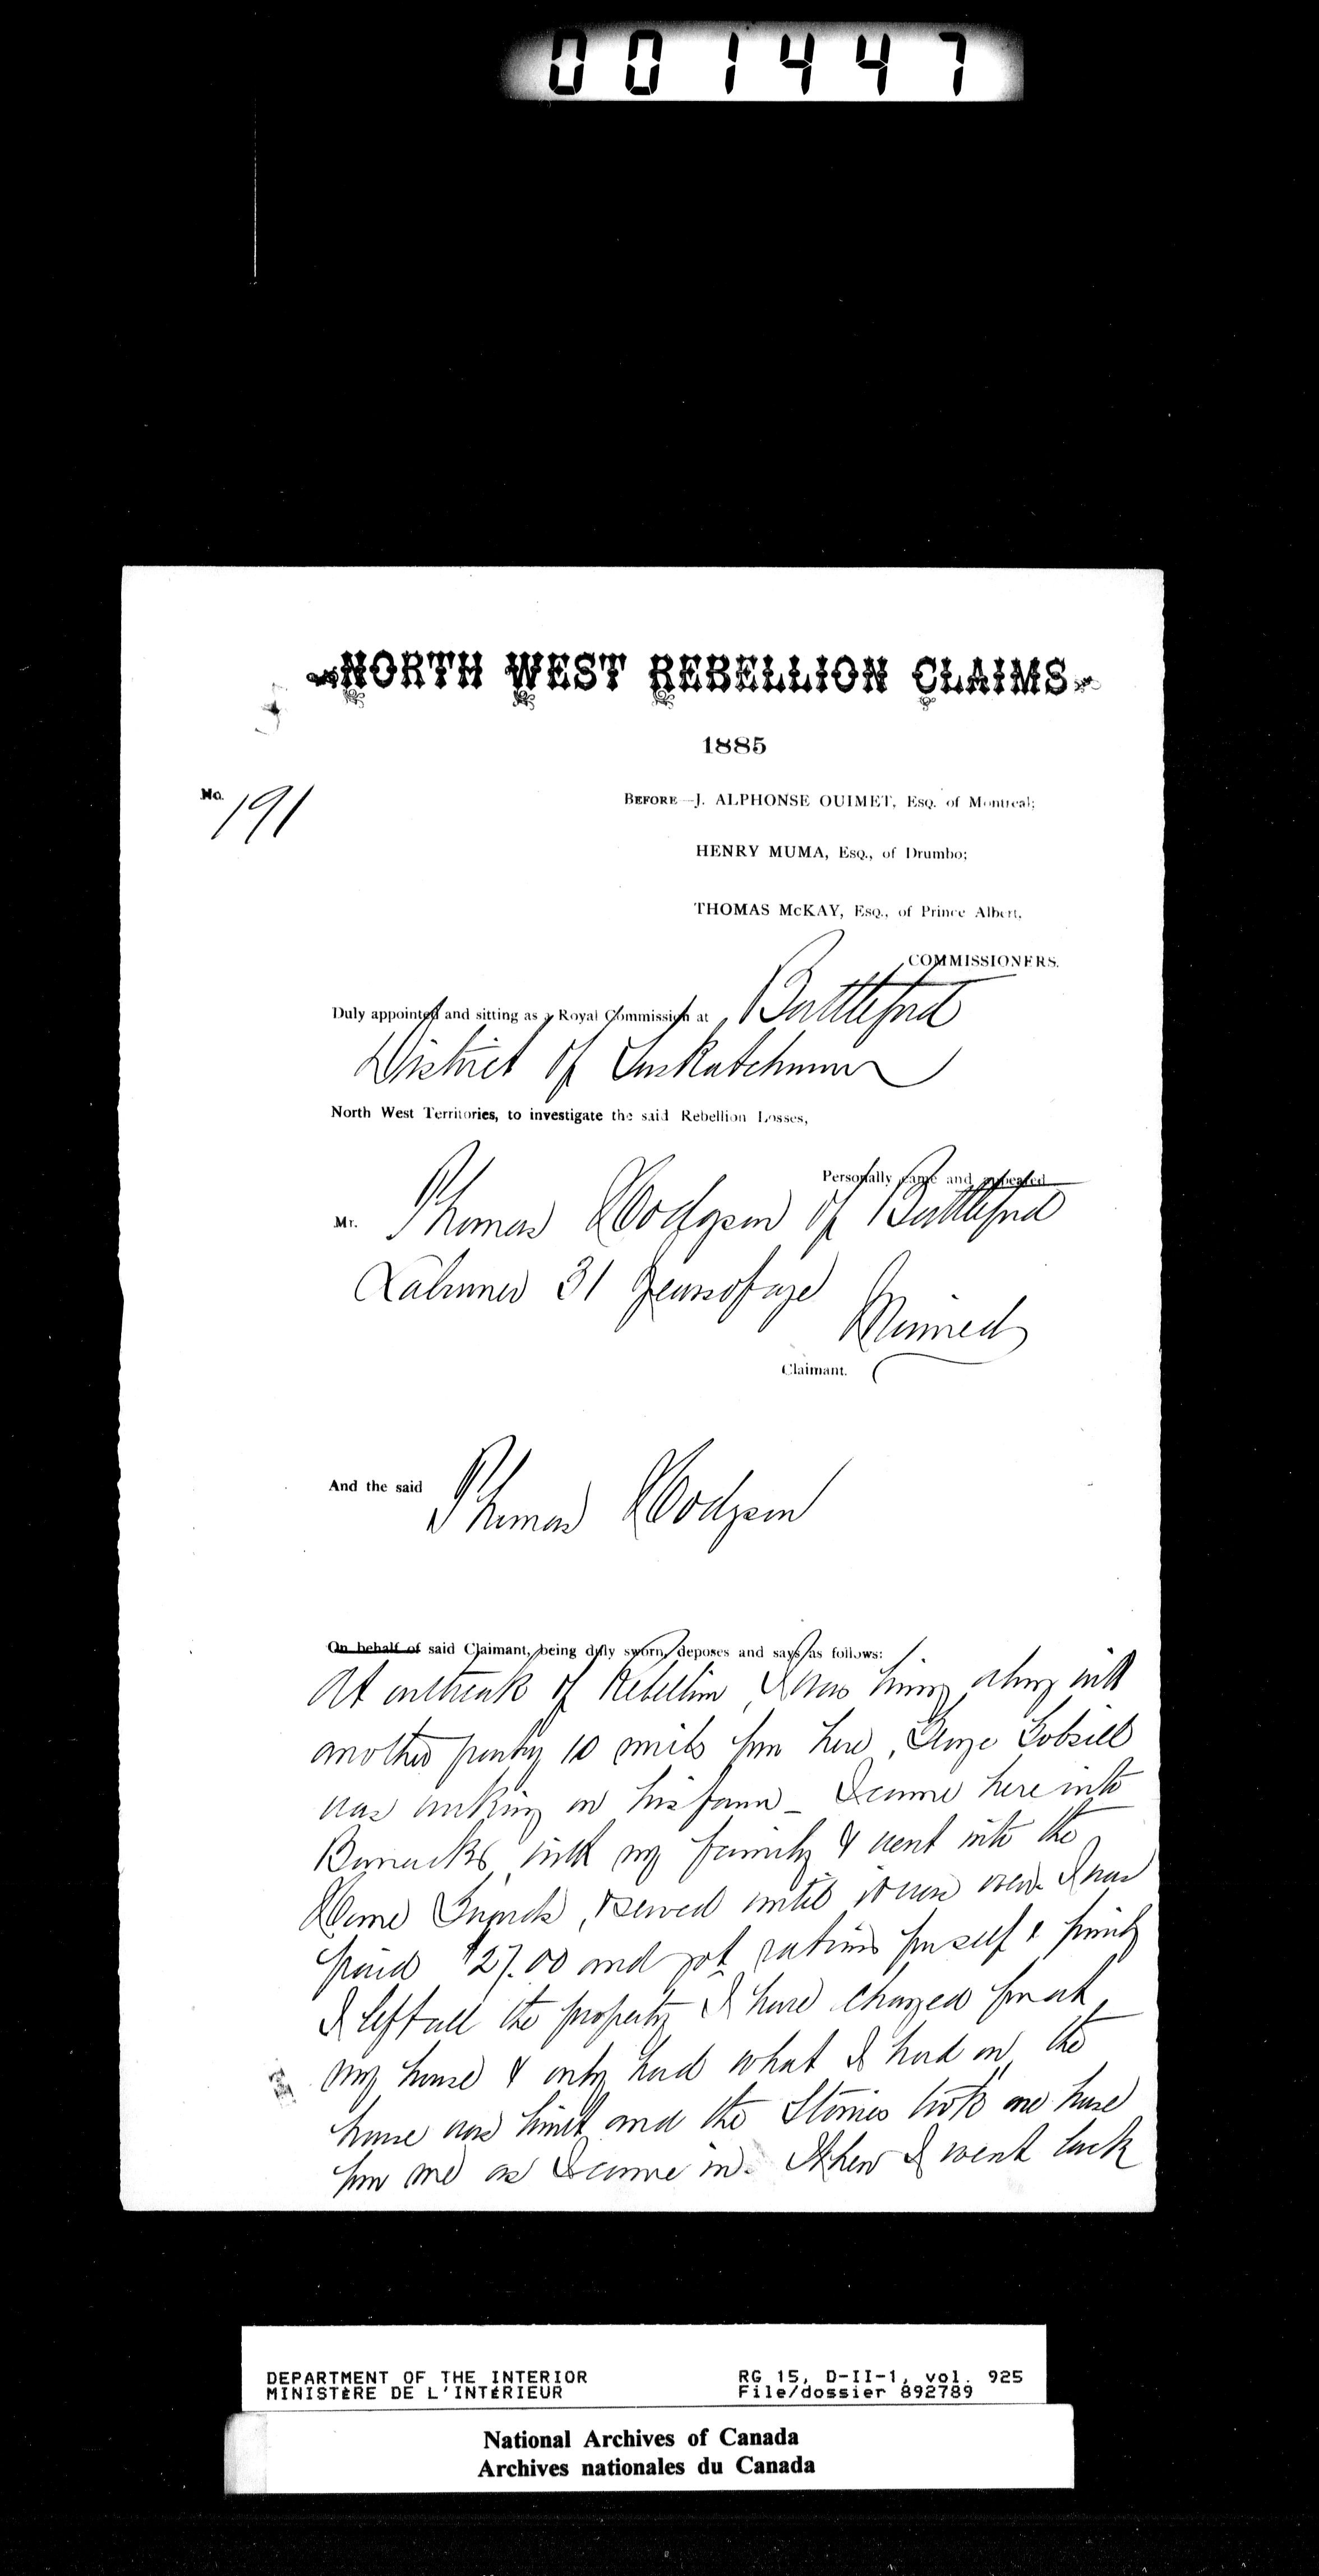 001447
NORTH WEST REBELLION CLAIMS
1885
No. 191
BEFORE—J. ALPHONSE OUIMET, Esq. of Montreal;
HENRY MUMA, Esq., of Drumbo;
THOMAS McKAY, Esq., of Prince Albert,
COMMISSIONERS.
Duly appointed and sitting as a Royal Commission at Battleford
District of Saskatchewan
North West Territories, to investigate the said Rebellion Losses,
Personally came and appeared
Mr. Thomas Hodgson of Battleford
Labourer 31 years of age
Married
Claimant.
And the said Thomas Hodgson
On behalf of said Claimant, being duly sworn, deposes and says as follows:
At outbreak of Rebellion, I was living along with
another party 10 miles from here, George Gobsill
was working on his farm - I came here into
Barracks with my family & went into the
Home Guards, served until it was over. I was
paid $27.00 and got rations for self & family
I left all the property I have charged for at
my house & only had what I had on, the
house was burnt and the Stonies took one horse
from me as I came in. When I went back
DEPARTMENT OF THE INTERIOR
MINISTÈRE DE L'INTÉRIEUR
RG 15, D-II-1, vol. 925
File/dossier 892789
National Archives of Canada
Archives nationales du Canada